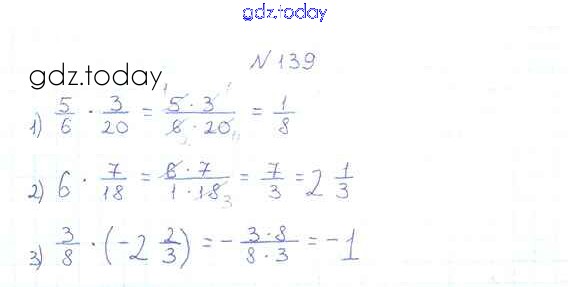 gdz.today
№ 139
gdz.today
1) 5/6 · 3/20 = 5 · 3 / 6 · 20 = 1/8
2) 6 · 7/18 = 6 · 7 / 1 · 18 3 = 7/3 = 2 1/3
3) 3/8 · (-2 2/3) = - 3 · 8 / 8 · 3 = -1